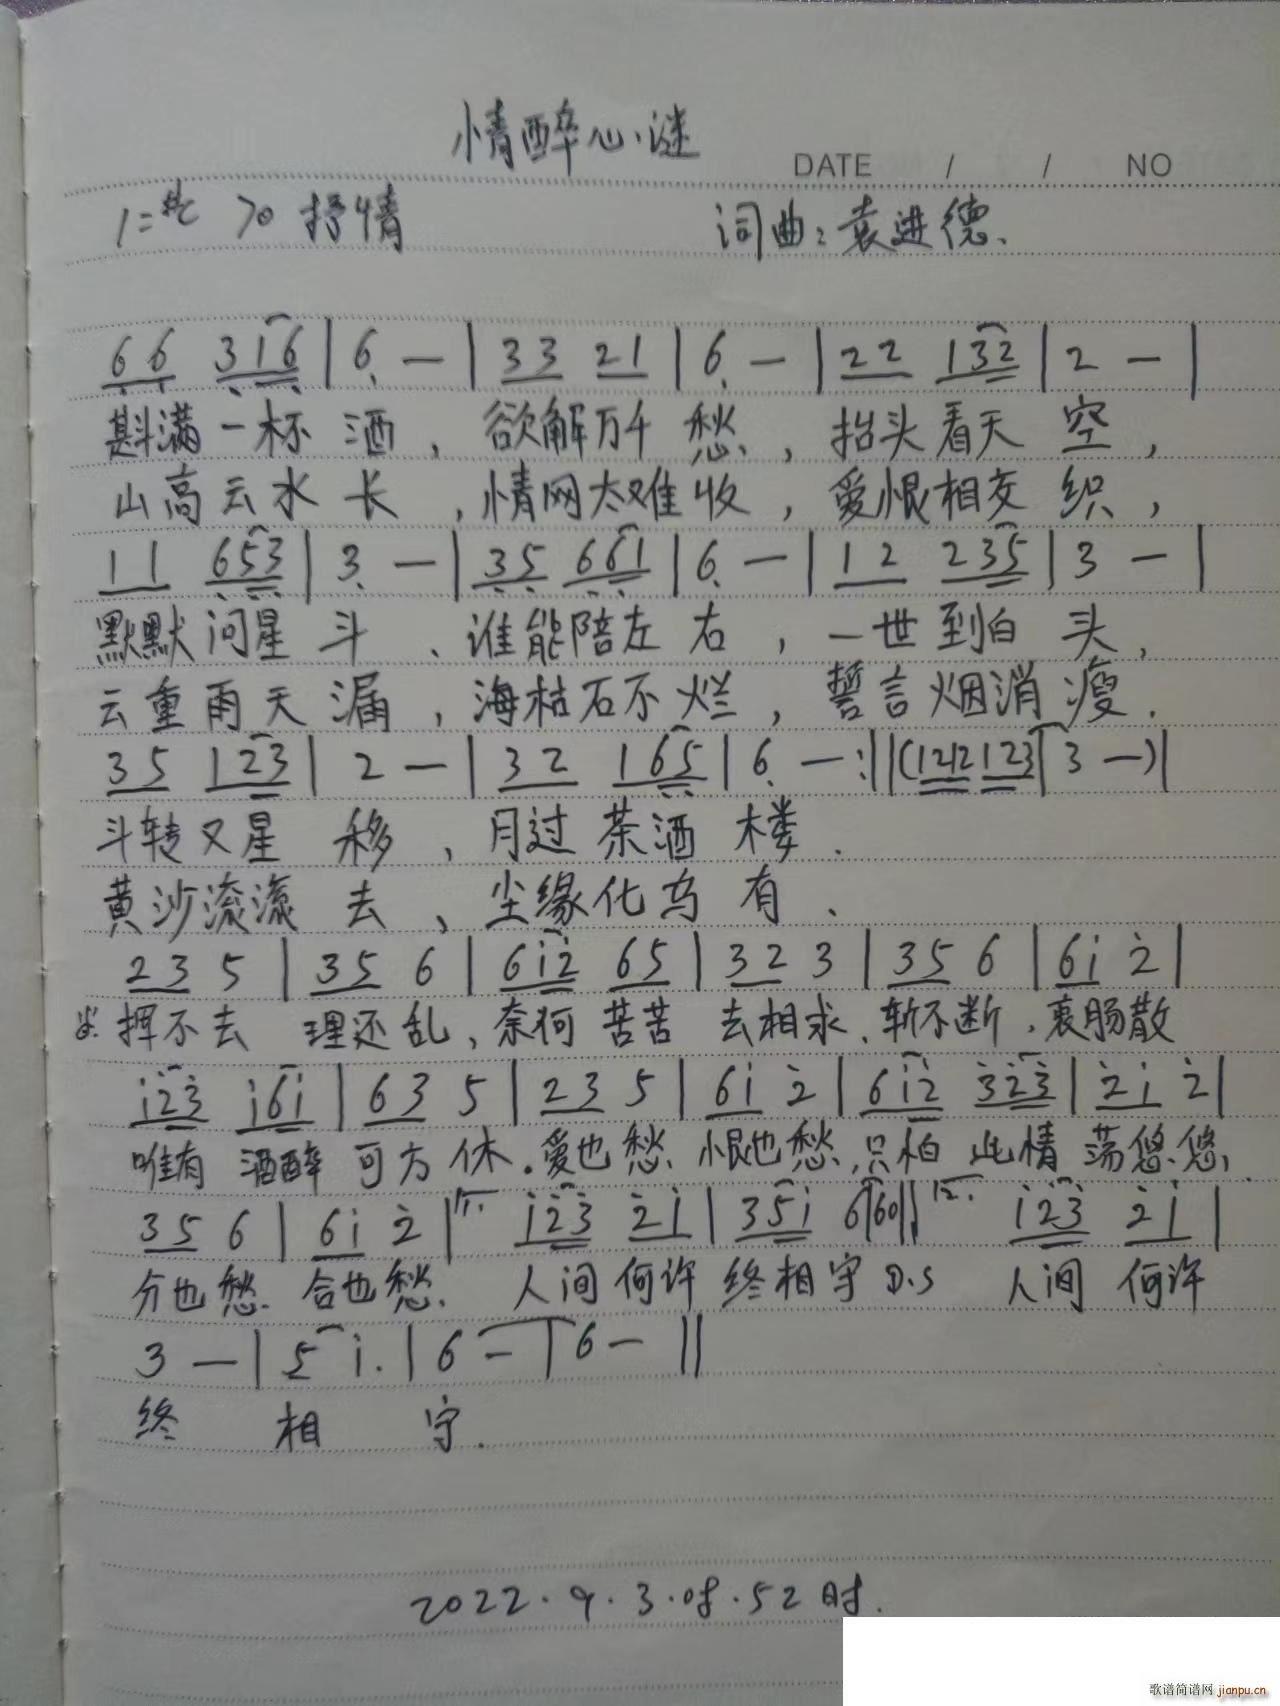 情醉心谜
DATE / / NO
1=#C 70 抒情 词曲:袁进德.
6 6 3 1 6 | 6 — | 3 3 2 1 | 6 — | 2 2 1 3 2 | 2 — |
斟满一杯 酒 , 欲解万千 愁 , 抬头看天 空 ,
山高云水 长 , 情网太难 收 , 爱恨相交 织 ,
1 1 6 5 3 | 3 — | 3 5 6 6 1 | 6 — | 1 2 2 3 5 | 3 — |
默默问星 斗 、 谁能陪左 右 , 一世到白 头 ,
云重雨天 漏 , 海枯石不 烂 , 誓言烟消 瘦 .
3 5 1 2 3 | 2 — | 3 2 1 6 5 | 6 — :|| (1212 123 | 3 —) |
斗转又星 移 , 月过 茶酒 楼 .
黄沙滚滚 去 、 尘缘化乌 有 、
2 3 5 | 3 5 6 | 6 i 2 6 5 | 3 2 3 | 3 5 6 | 6 i 2 |
挥不去 理还乱, 奈何 苦苦 去相求. 斩不断 , 衷肠散
i 2 3 i 6 i | 6 3 5 | 2 3 5 | 6 i 2 | 6 i 2 3 2 3 | 2 i 2 |
唯有 酒醉 可方休. 爱也愁. 恨也愁, 只怕 此情 荡悠悠,
3 5 6 | 6 i 2 | 1. i 2 3 2 i | 3 5 i 6 | 60 || 2. i 2 3 2 i |
分也愁. 合也愁. 人间 何许 终相守 D.S 人间 何许
3 — | 5 i. | 6 — | 6 — ||
终 相 守.
2022.9.3.08.52时.
歌谱简谱网 jianpu.cn